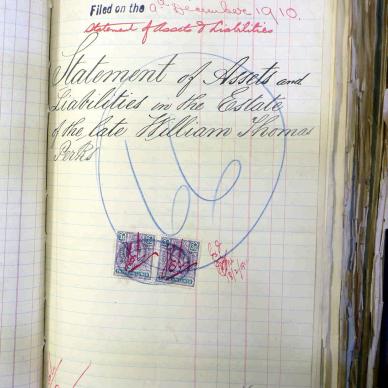 Filed on the December 1910.
Statement of Assets & Liabilities
Statement of Assets and
Liabilities in the Estate
of the late William Thomas
Perks